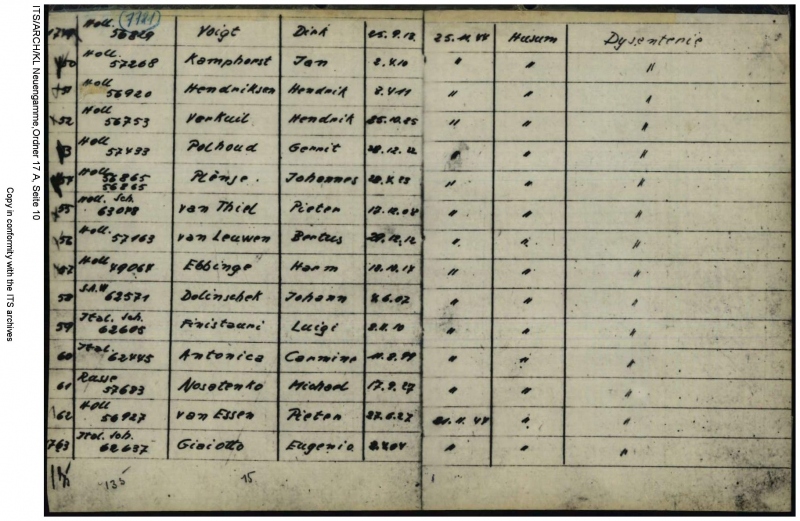 ITS/ARCH/KL Neuengamme,Ordner 17 A, Seite 10
Copy in conformity with the ITS archives
(7721)
Holl. 56829 Voigt Dirk 25.9.13 25.11.44 Husum Dysenterie
50 Holl. 57268 Kamphorst Jan 2.4.10 " " "
51 Holl 56920 Hendriksen Hendrik " " "
52 Holl 56753 Verkuil Hendrik 25.10.25 " " "
Holl 57433 Polhoud Gerrit 28.12.22 " " "
Holl. 56865 Plönje. Johannes " " "
56865
55 Holl. Sch. 63078 van Thiel Pieter 17.12.04 " " "
56 Holl. 57163 van Leuwen Bertus 29.12.12 " " "
57 Holl 49064 Ebbinge Harm 18.10.14 " " "
58 S.A.W 62571 Dolinschek Johann 4.6.02 " " "
59 Ital. Sch. 62605 Finistauri Luigi 8.4.10 " " "
60 Ital. 62445 Antonica Carmine 11.8.99 " " "
61 Russe 57683 Nosatenko Michael 17.9.27 " " "
62 Holl 56927 van Essen Pieter 27.6.27 21.11.44 " "
763 Ital. Sch. 62637 Giaiotto Eugenio " " "
135 15